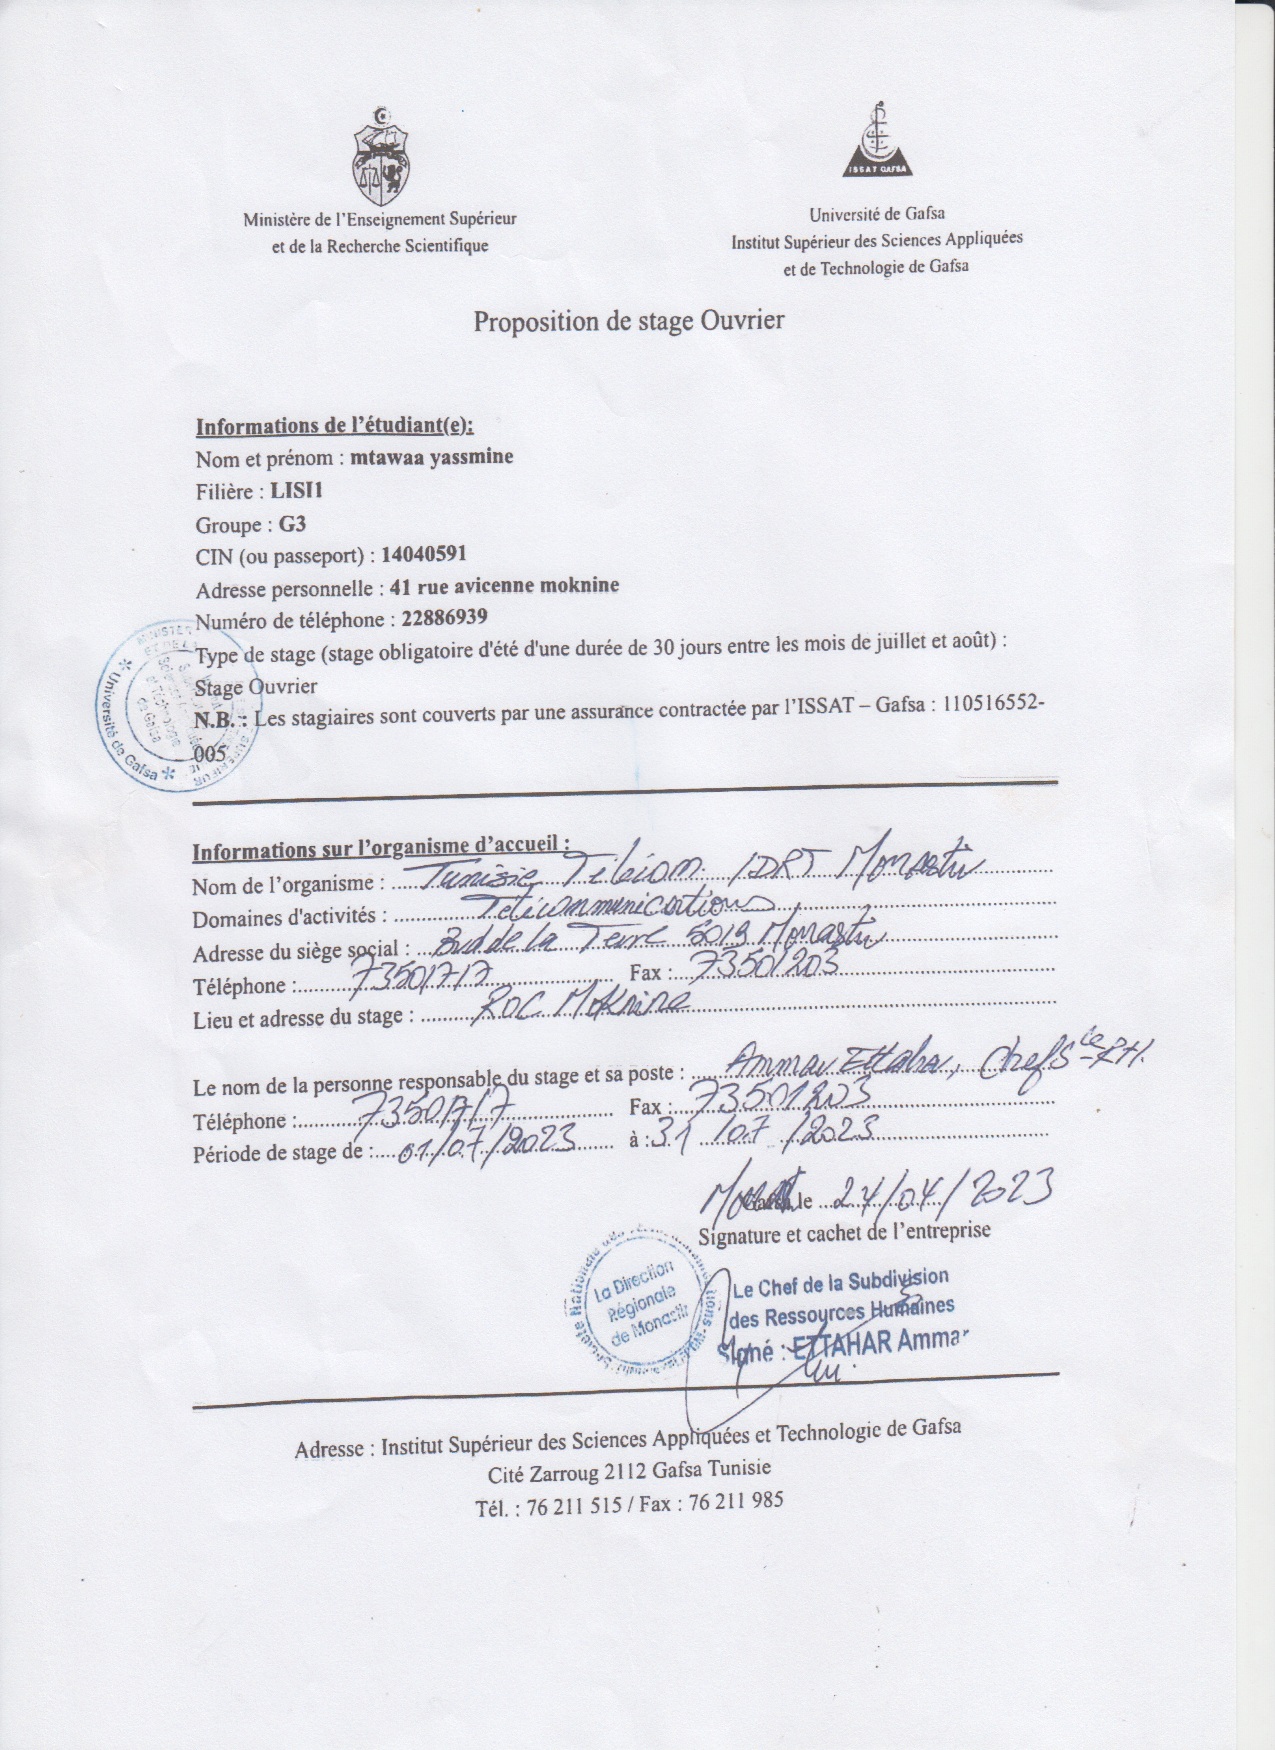 ISSAT GAFSA
Ministère de l'Enseignement Supérieur
et de la Recherche Scientifique
Université de Gafsa
Institut Supérieur des Sciences Appliquées
et de Technologie de Gafsa
Proposition de stage Ouvrier
Informations de l'étudiant(e):
Nom et prénom : mtawaa yassmine
Filière : LISI1
Groupe : G3
CIN (ou passeport) : 14040591
Adresse personnelle : 41 rue avicenne moknine
Numéro de téléphone : 22886939
Type de stage (stage obligatoire d'été d'une durée de 30 jours entre les mois de juillet et août) :
Stage Ouvrier
N.B. : Les stagiaires sont couverts par une assurance contractée par l'ISSAT – Gafsa : 110516552-
005
Université de Gafsa
Informations sur l'organisme d'accueil :
Nom de l'organisme : Tunisie Télécom /DRT Monastir
Domaines d'activités : Télécommunications
Adresse du siège social : Bvd de la Terre 5019 Monastir
Téléphone : 73501717 Fax : 73501203
Lieu et adresse du stage : Moknine
Le nom de la personne responsable du stage et sa poste : Ammar Ettahar, Chef S ce RH.
Téléphone : 73501717 Fax : 73501203
Période de stage de : 01/07/2023 à : 31/07/2023
le 24/04/2023
Signature et cachet de l'entreprise
La Direction
Régionale
de Monastir
Le Chef de la Subdivision
des Ressources Humaines
Signé : ETTAHAR Ammar
Adresse : Institut Supérieur des Sciences Appliquées et Technologie de Gafsa
Cité Zarroug 2112 Gafsa Tunisie
Tél. : 76 211 515 / Fax : 76 211 985